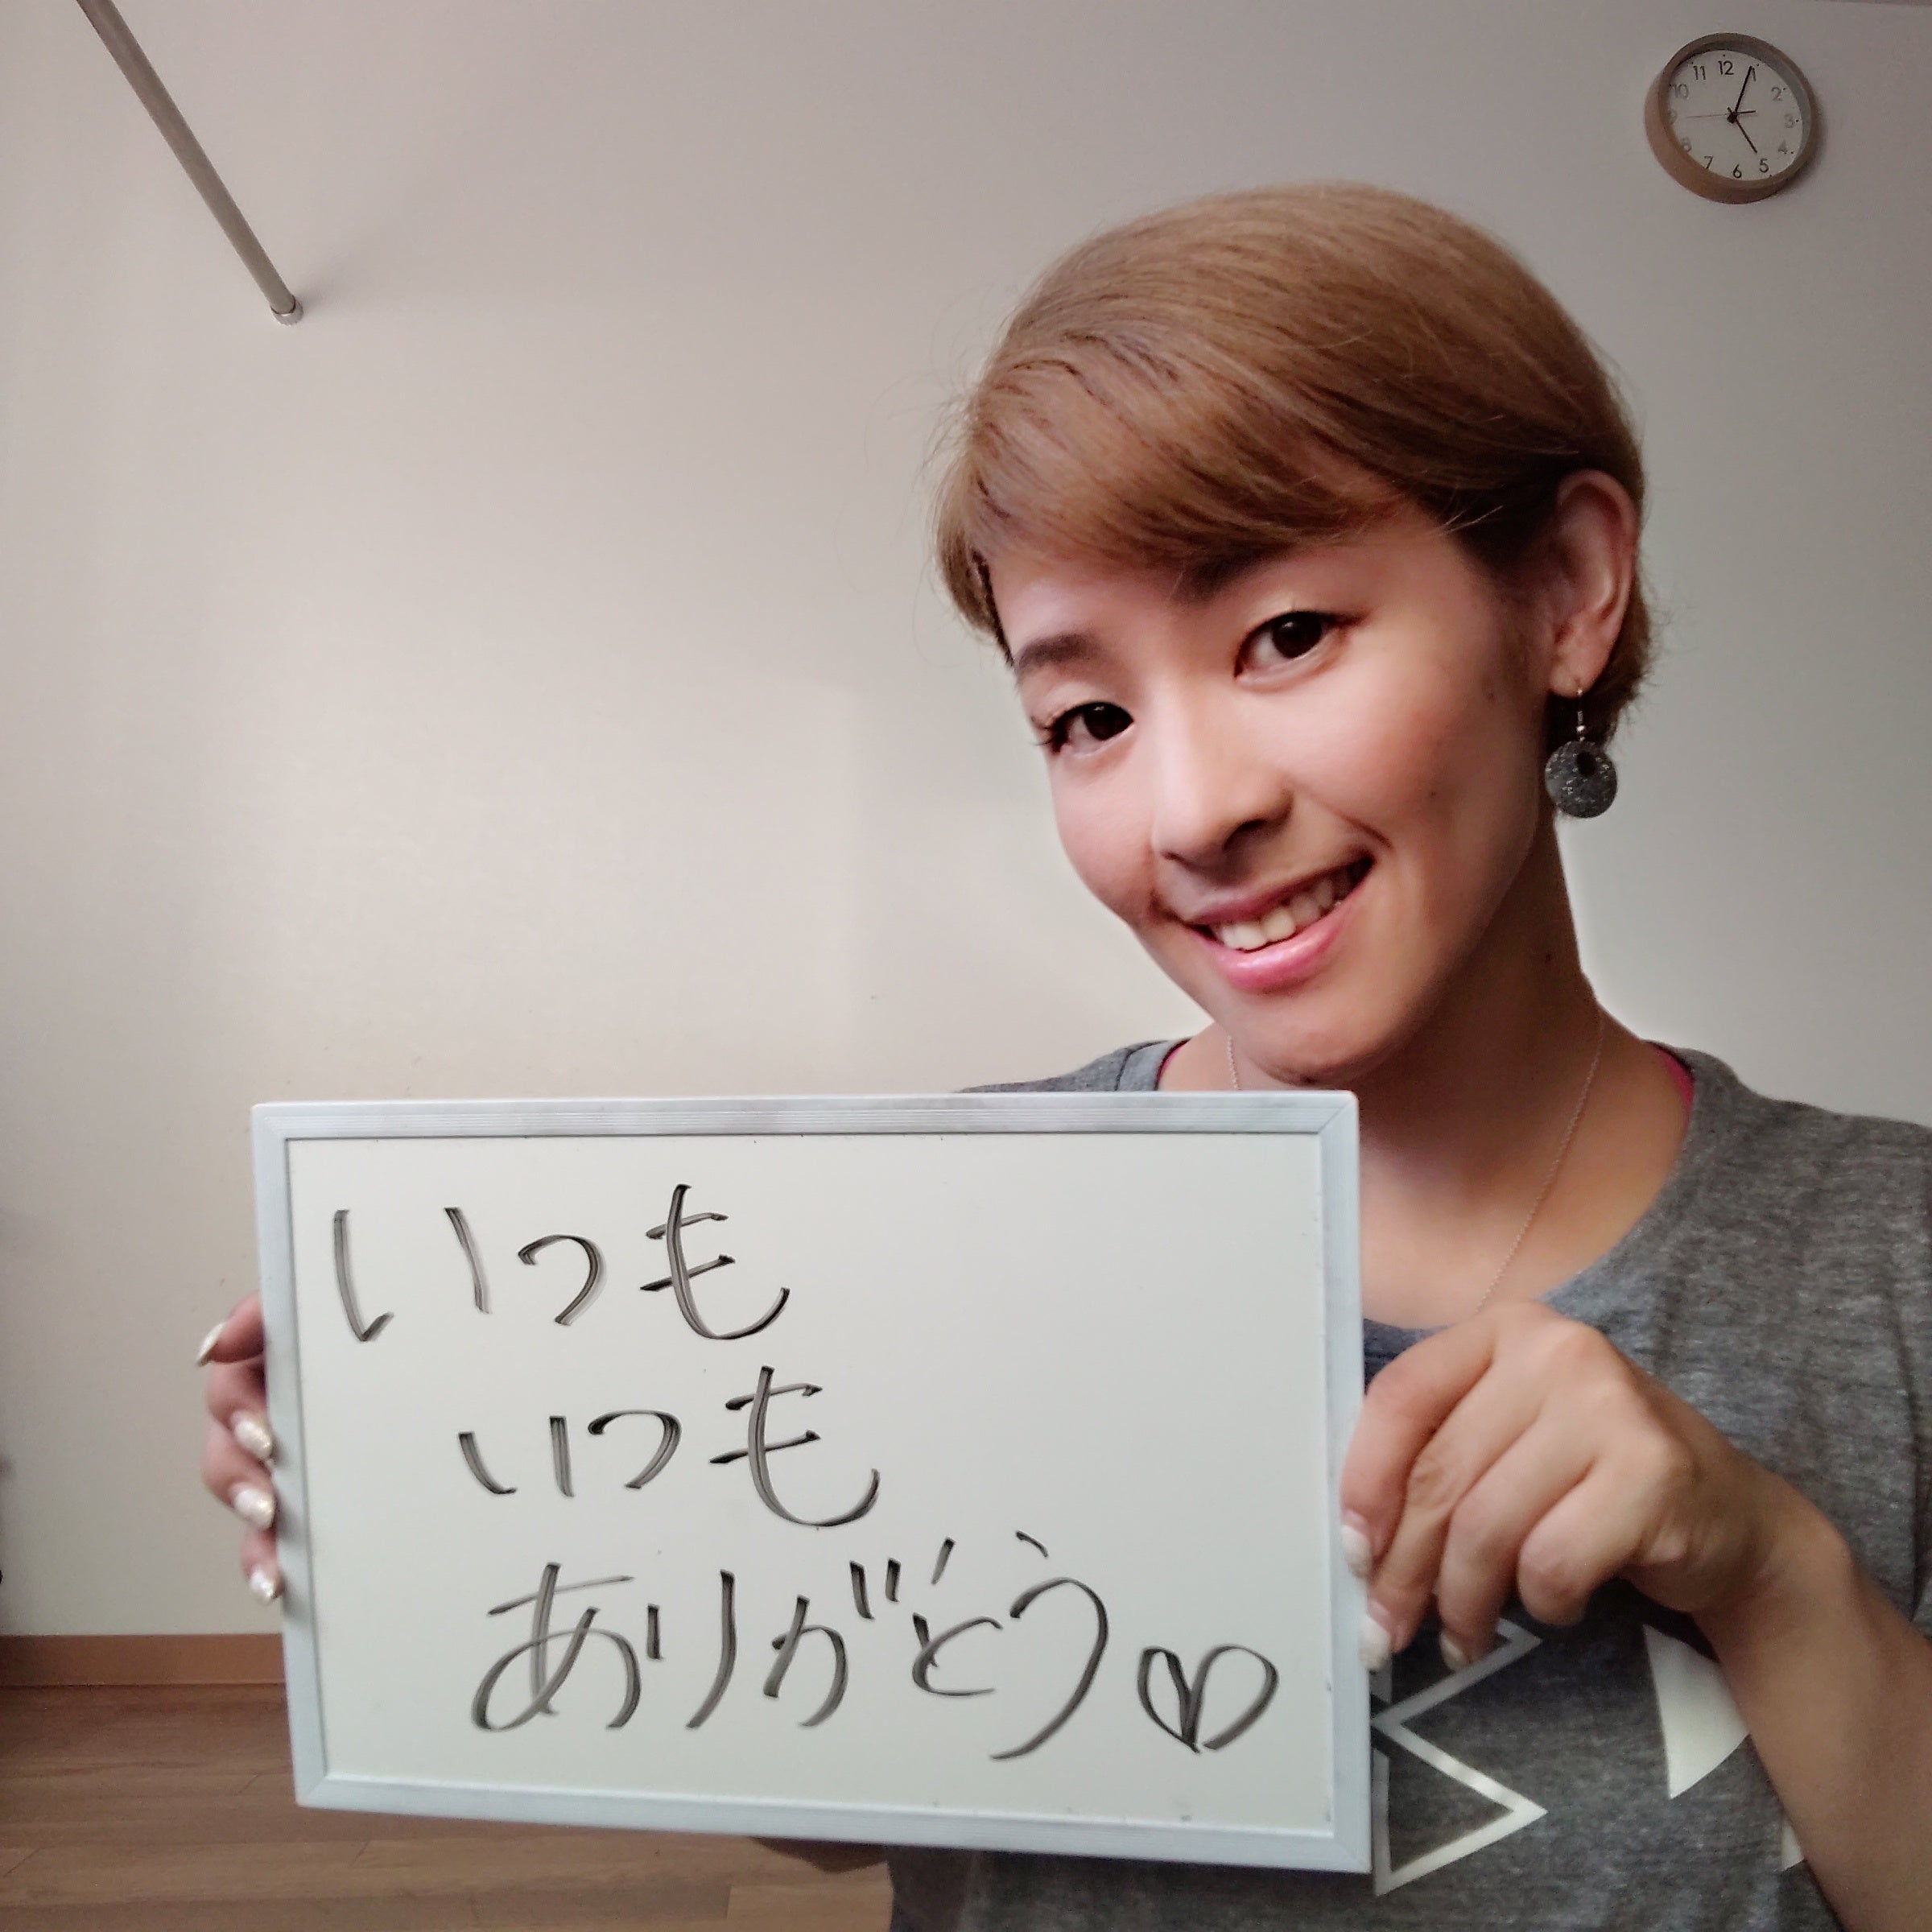 いつも
いつも
ありがとう♡
11 12 1 2 3 4 5 6 7 8 9 10